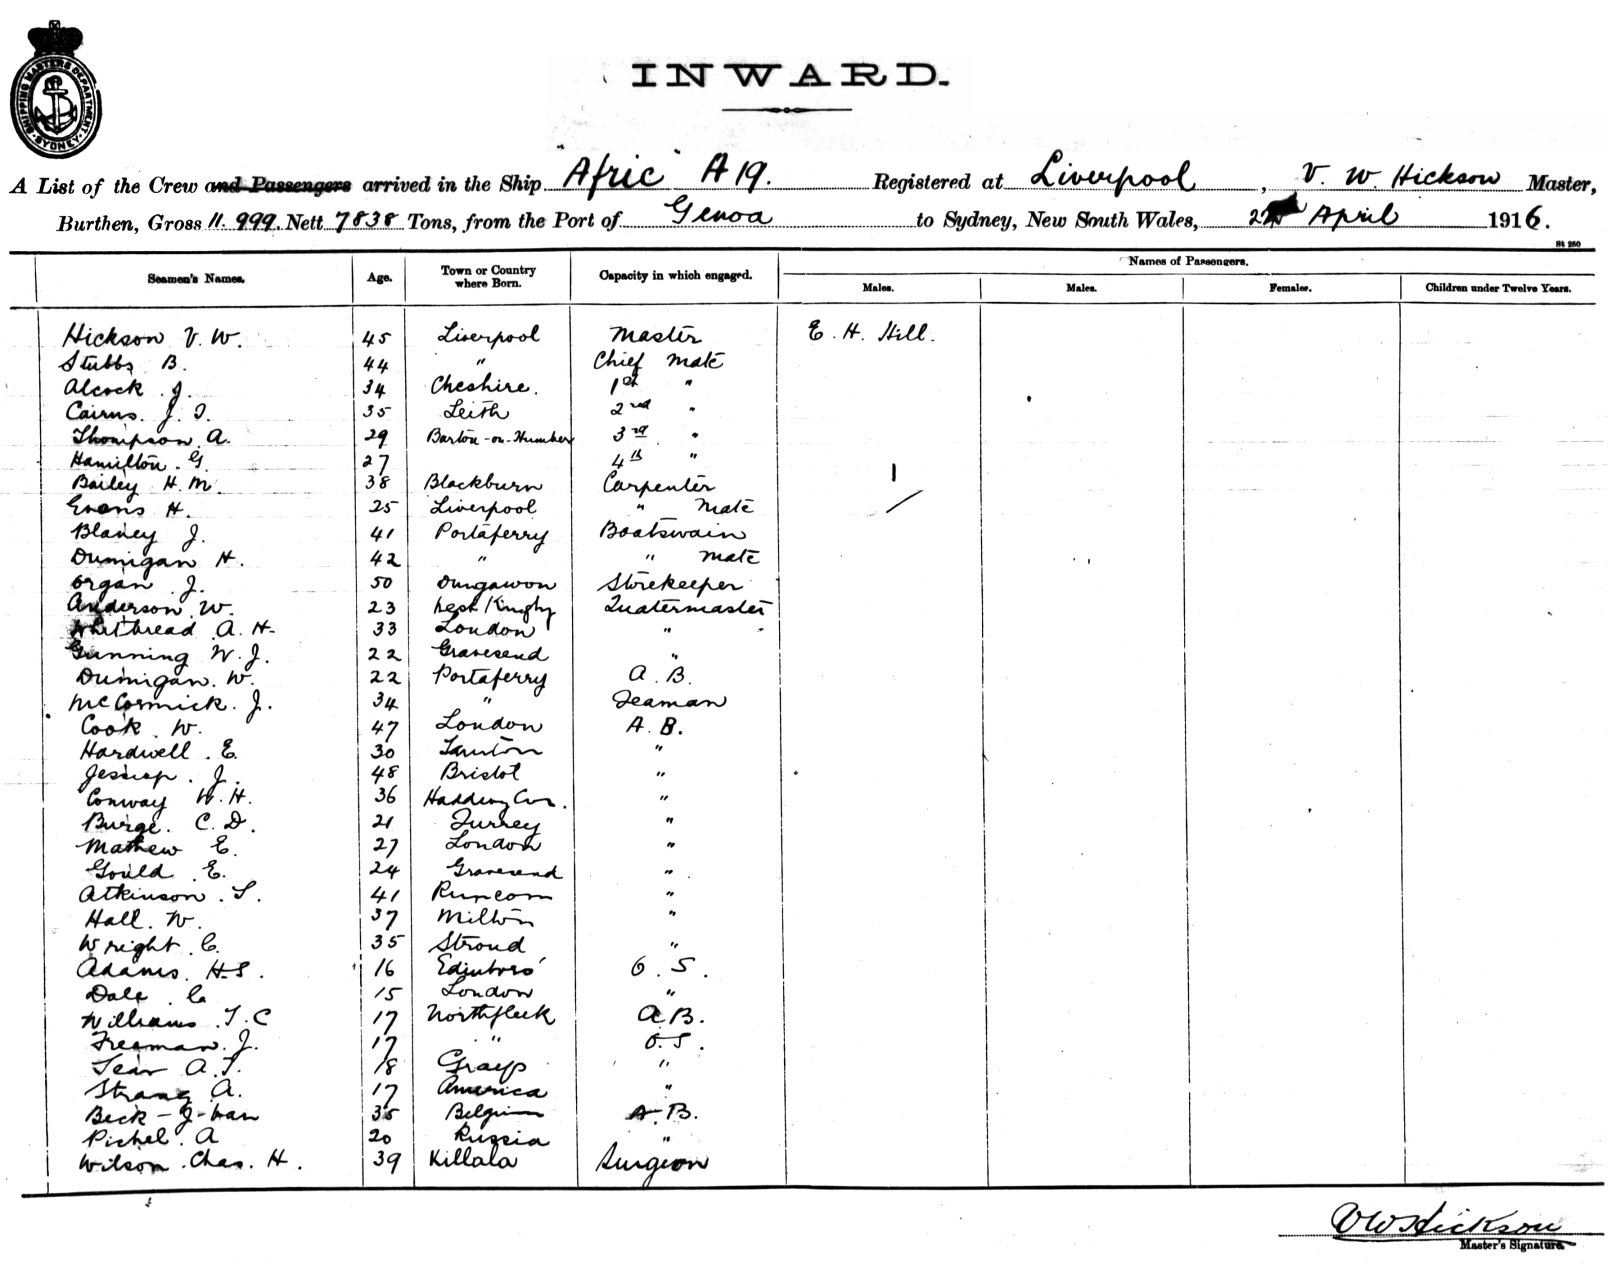 SHIPPING MASTERS DEPARTMENT. SYDNEY
INWARD.
A List of the Crew and Passengers arrived in the Ship "Afric" A19. Registered at Liverpool, V. W. Hickson Master,
Burthen, Gross 11.999. Nett 7838 Tons, from the Port of Genoa to Sydney, New South Wales, April 1916.
St 250
Seamen's Names. Age. Town or Country where Born. Capacity in which engaged. Names of Passengers.
Males. Males. Females. Children under Twelve Years.
Hickson V. W. 45 Liverpool Master E. H. Hill.
Stubbs B. 44 " Chief Mate
Alcock J. 34 Cheshire. 1st "
Cairns. J. T. 35 Leith 2nd "
Thompson A. 29 Barton-on-Humber 3rd "
Hamilton. G. 27 4th "
Bailey H. M. 38 Blackburn Carpenter
Evans H. 25 Liverpool " Mate
Blaney J. 41 Portaferry Boatswain
Dumigan H. 42 " " Mate
Organ J. 50 Dungawon Storekeeper
Anderson W. 23 Quatermaster
Whitbread A. H. 33 London "
Gunning W. J. 22 Gravesend "
Dumigan. W. 22 Portaferry A. B.
McCormick. J. 34 " Seaman
Cook. W. 47 London A. B.
Hardwell. E. 30 Tanton "
Jessop. J. 48 Bristol "
Conway W. H. 36 "
Burge. C. D. 21 Surrey "
Mathew E. 27 London "
Gould E. 24 Gravesend "
Atkinson. T. 41 Runcorn "
Hall. W. 37 Milton "
Wright C. 35 Stroud "
Adams. H. S. 16 Edinboro' O. S.
Dale. C. 15 London "
Williams. T. C 17 Northfleek A. B.
Freeman. J. 17 " O. S.
Tear A. T. 18 Grays "
Strang A. 17 America "
Beck-J-Van 35 Belgium A. B.
Pichel. A 20 Russia "
Wilson. Chas. H. 39 Killala Surgeon
VWHickson
Master's Signature.